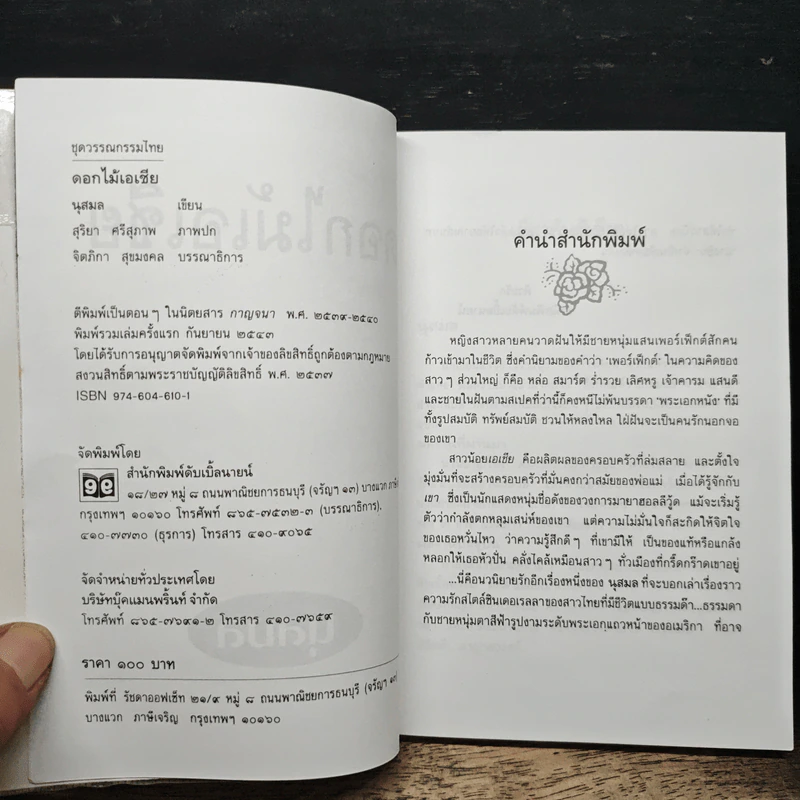 ชุดวรรณกรรมไทย
ดอกไม้เอเซีย
นุสมล เขียน
สุริยา ศรีสุภาพ ภาพปก
จิตภิกา สุขมงคล บรรณาธิการ
ตีพิมพ์เป็นตอนๆ ในนิตยสาร กาญจนา พ.ศ. ๒๕๓๙-๒๕๔๐
พิมพ์รวมเล่มครั้งแรก กันยายน ๒๕๔๓
โดยได้รับการอนุญาตจัดพิมพ์จากเจ้าของลิขสิทธิ์ถูกต้องตามกฎหมาย
สงวนสิทธิ์ตามพระราชบัญญัติลิขสิทธิ์ พ.ศ. ๒๕๓๗
ISBN 974-604-610-1
จัดพิมพ์โดย
สำนักพิมพ์ดับเบิ้ลนายน์
๑๘/๒๗ หมู่ ๘ ถนนพาณิชยการธนบุรี (จรัญฯ ๑๓) บางแวก
กรุงเทพฯ ๑๐๑๖๐ โทรศัพท์ ๘๖๕-๗๕๓๒-๓ (บรรณาธิการ).
๔๑๐-๗๗๓๐ (ธุรการ) โทรสาร ๔๑๐-๙๐๖๕
จัดจำหน่ายทั่วประเทศโดย
บริษัทบุ๊คแมนพริ้นท์ จำกัด
โทรศัพท์ ๘๖๕-๗๖๙๑-๒ โทรสาร ๔๑๐-๗๖๕๙
ราคา ๑๐๐ บาท
พิมพ์ที่ รัชดาออฟเซ็ท ๒๑/๙ หมู่ ๘ ถนนพาณิชยการธนบุรี (จรัญฯ
บางแวก ภาษีเจริญ กรุงเทพฯ ๑๐๑๖๐
คำนำสำนักพิมพ์
หญิงสาวหลายคนวาดฝันให้มีชายหนุ่มแสนเพอร์เฟ็กต์สักคน
ก้าวเข้ามาในชีวิต ซึ่งคำนิยามของคำว่า 'เพอร์เฟ็กต์' ในความคิดของ
สาวๆ ส่วนใหญ่ ก็คือ หล่อ สมาร์ต ร่ำรวย เลิศหรู เจ้าคารม แสนดี
และชายในฝันตามสเปคที่ว่านี้ก็คงหนีไม่พ้นบรรดา 'พระเอกหนัง' ที่มี
ทั้งรูปสมบัติ ทรัพย์สมบัติ ชวนให้หลงใหล ใฝ่ฝันจะเป็นคนรักนอกจอ
ของเขา
สาวน้อยเอเซีย คือผลิตผลของครอบครัวที่ล่มสลาย และตั้งใจ
มุ่งมั่นที่จะสร้างครอบครัวที่มั่นคงกว่าสมัยของพ่อแม่ เมื่อได้รู้จักกับ
เขา ซึ่งเป็นนักแสดงหนุ่มชื่อดังของวงการมายาฮอลลีวู้ด แม้จะเริ่มรู้
ตัวว่ากำลังตกหลุมเสน่ห์ของเขา แต่ความไม่มั่นใจก็สะกิดให้จิตใจ
ของเธอหวั่นไหว ว่าความรู้สึกดีๆ ที่เขามีให้ เป็นของแท้หรือแกล้ง
หลอกให้เธอหัวปั่น คลั่งไคล้เหมือนสาวๆ ทั่วเมืองที่กรี๊ดกร๊าดเขาอยู่
...นี่คือนวนิยายรักอีกเรื่องหนึ่งของ นุสมล ที่จะบอกเล่าเรื่องราว
ความรักสไตล์ซินเดอเรลลาของสาวไทยที่มีชีวิตแบบธรรมด๊า...ธรรมดา
กับชายหนุ่มตาสีฟ้ารูปงามระดับพระเอกแถวหน้าของอเมริกา ที่อาจ